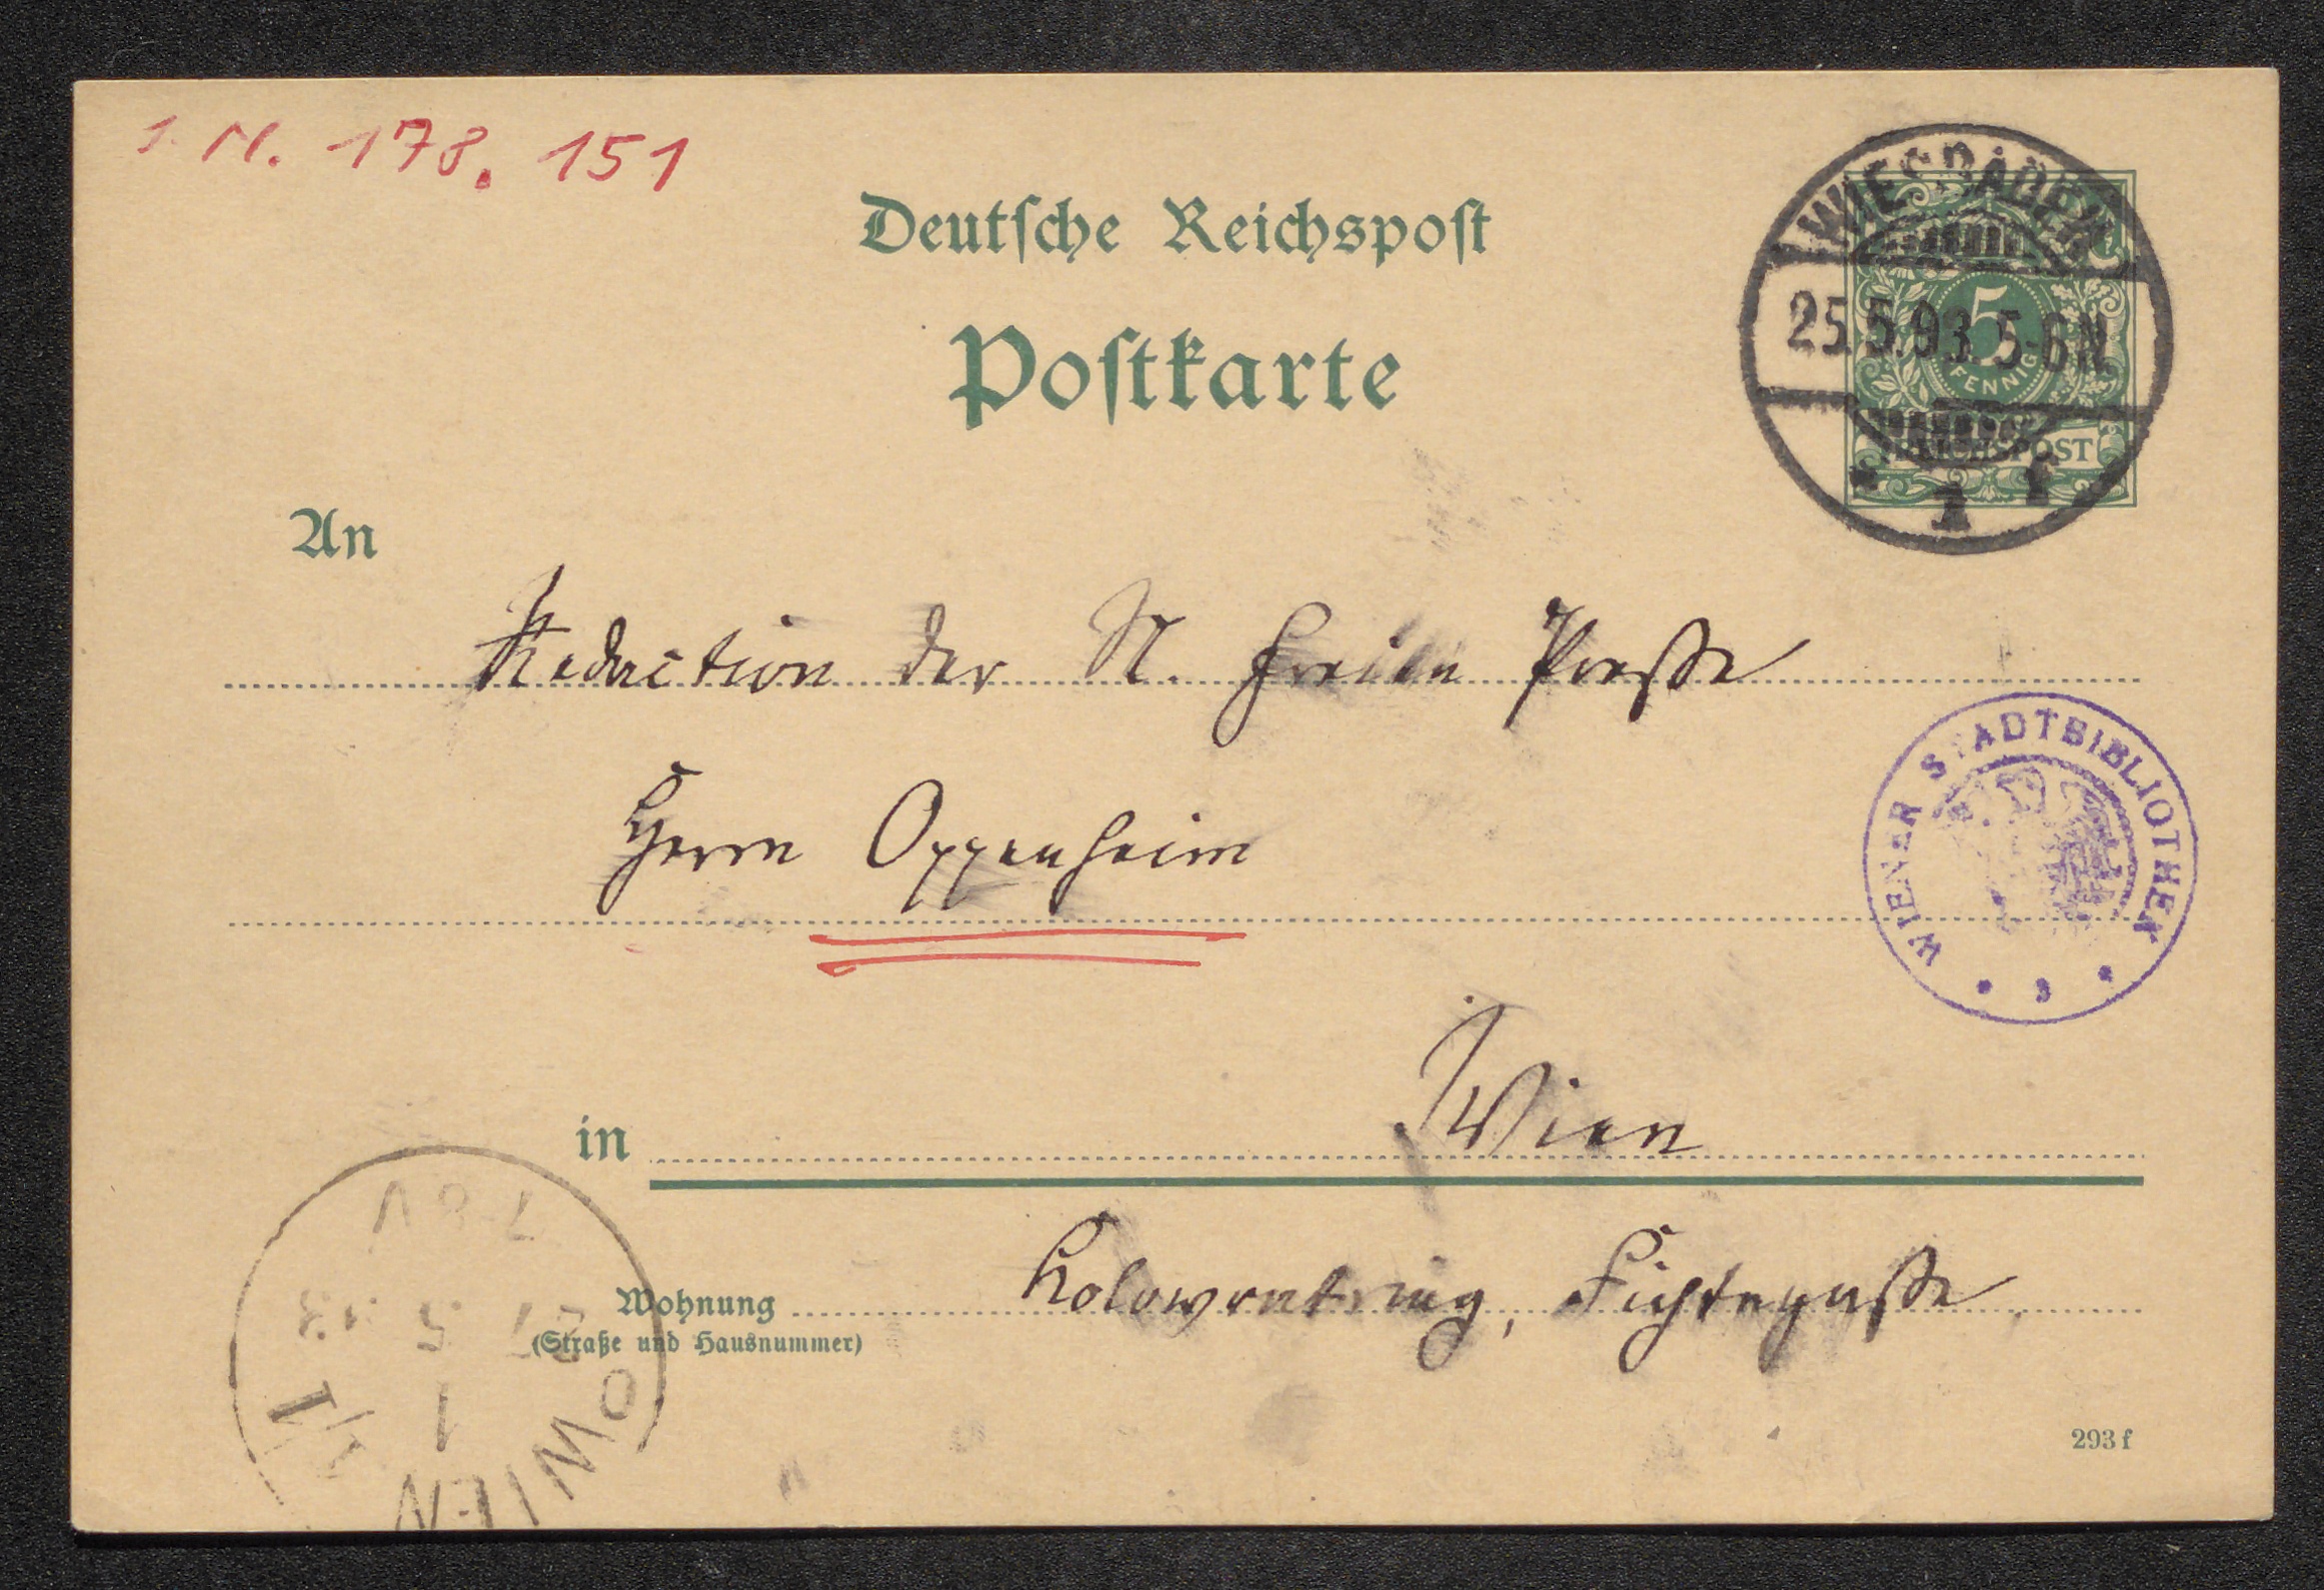 J. N. 178.151
Deutsche Reichspost
Postkarte
WIESBADEN
25.5.93. 5-6N
* 1 f
5
PFENNIG
REICHSPOST
An
Redaction der N. Freien Presse
Herrn Oppenheim
WIENER STADTBIBLIOTHEK
in Wien
Wohnung Kolowratring, Fichtegasse
(Straße und Hausnummer)
293 f
WIEN
1/1
7-8V
27 5 93
1